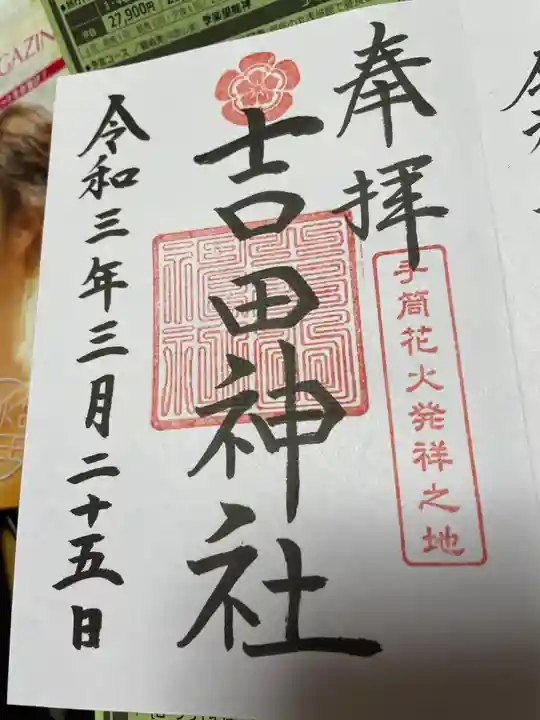 奉拝
手筒花火発祥之地
吉田神社
令和三年三月二十五日
27,900円
GAZIN